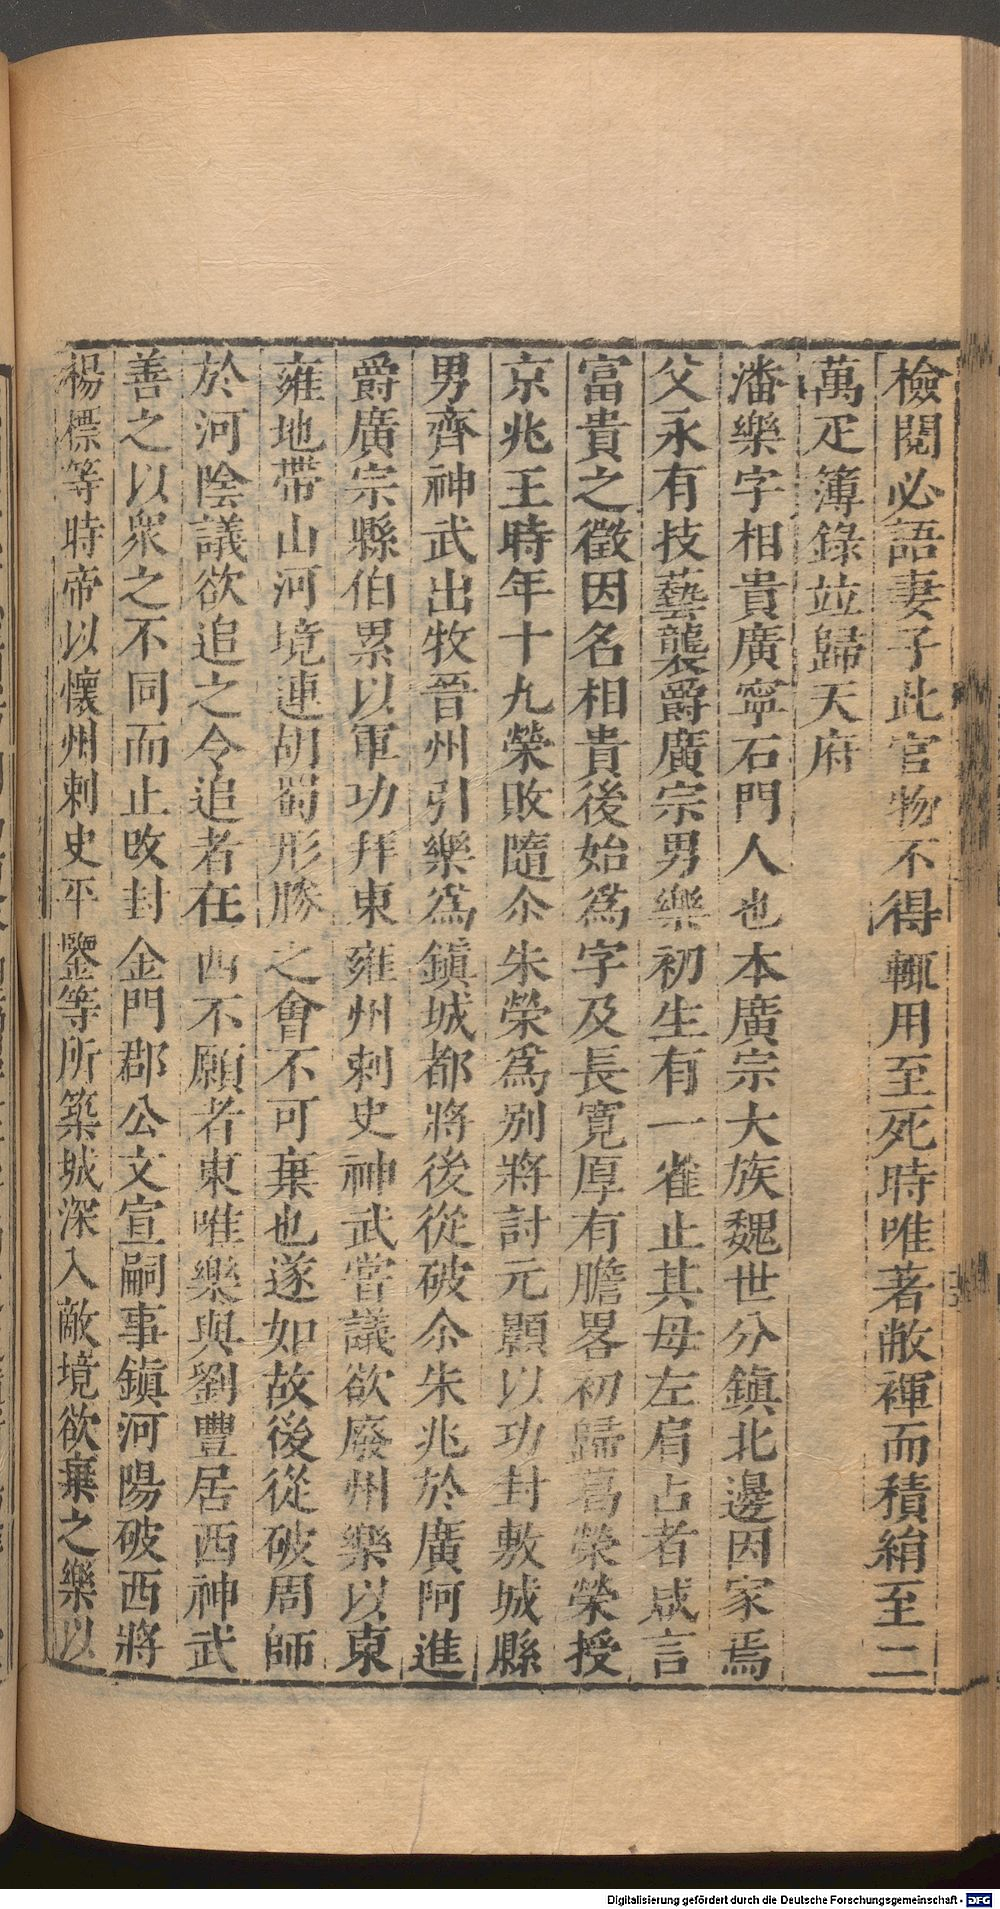 檢閱必語妻子此官物不得輒用至死時唯著敝褌而積絹至二
萬疋簿錄竝歸天府
潘樂字相貴廣寧石門人也本廣宗大族魏世分鎮北邊因家焉
父永有技藝襲爵廣宗男樂初生有一雀止其母左肩占者咸言
富貴之徵因名相貴後始爲字及長寬厚有膽畧初歸葛榮榮授
京兆王時年十九榮敗隨尒朱榮爲別將討元顥以功封敷城縣
男齊神武出牧晉州引樂爲鎮城都將後從破尒朱兆於廣阿進
爵廣宗縣伯累以軍功拜東雍州刺史神武嘗議欲廢州樂以東
雍地帶山河境連胡蜀形勝之會不可棄也遂如故後從破周師
於河陰議欲追之令追者在西不願者東唯樂與劉豐居西神武
善之以衆之不同而止改封金門郡公文宣嗣事鎮河陽破西將
楊㯹等時帝以懷州刺史平鑒等所築城深入敵境欲棄之樂以
Digitalisierung gefördert durch die Deutsche Forschungsgemeinschaft - DFG